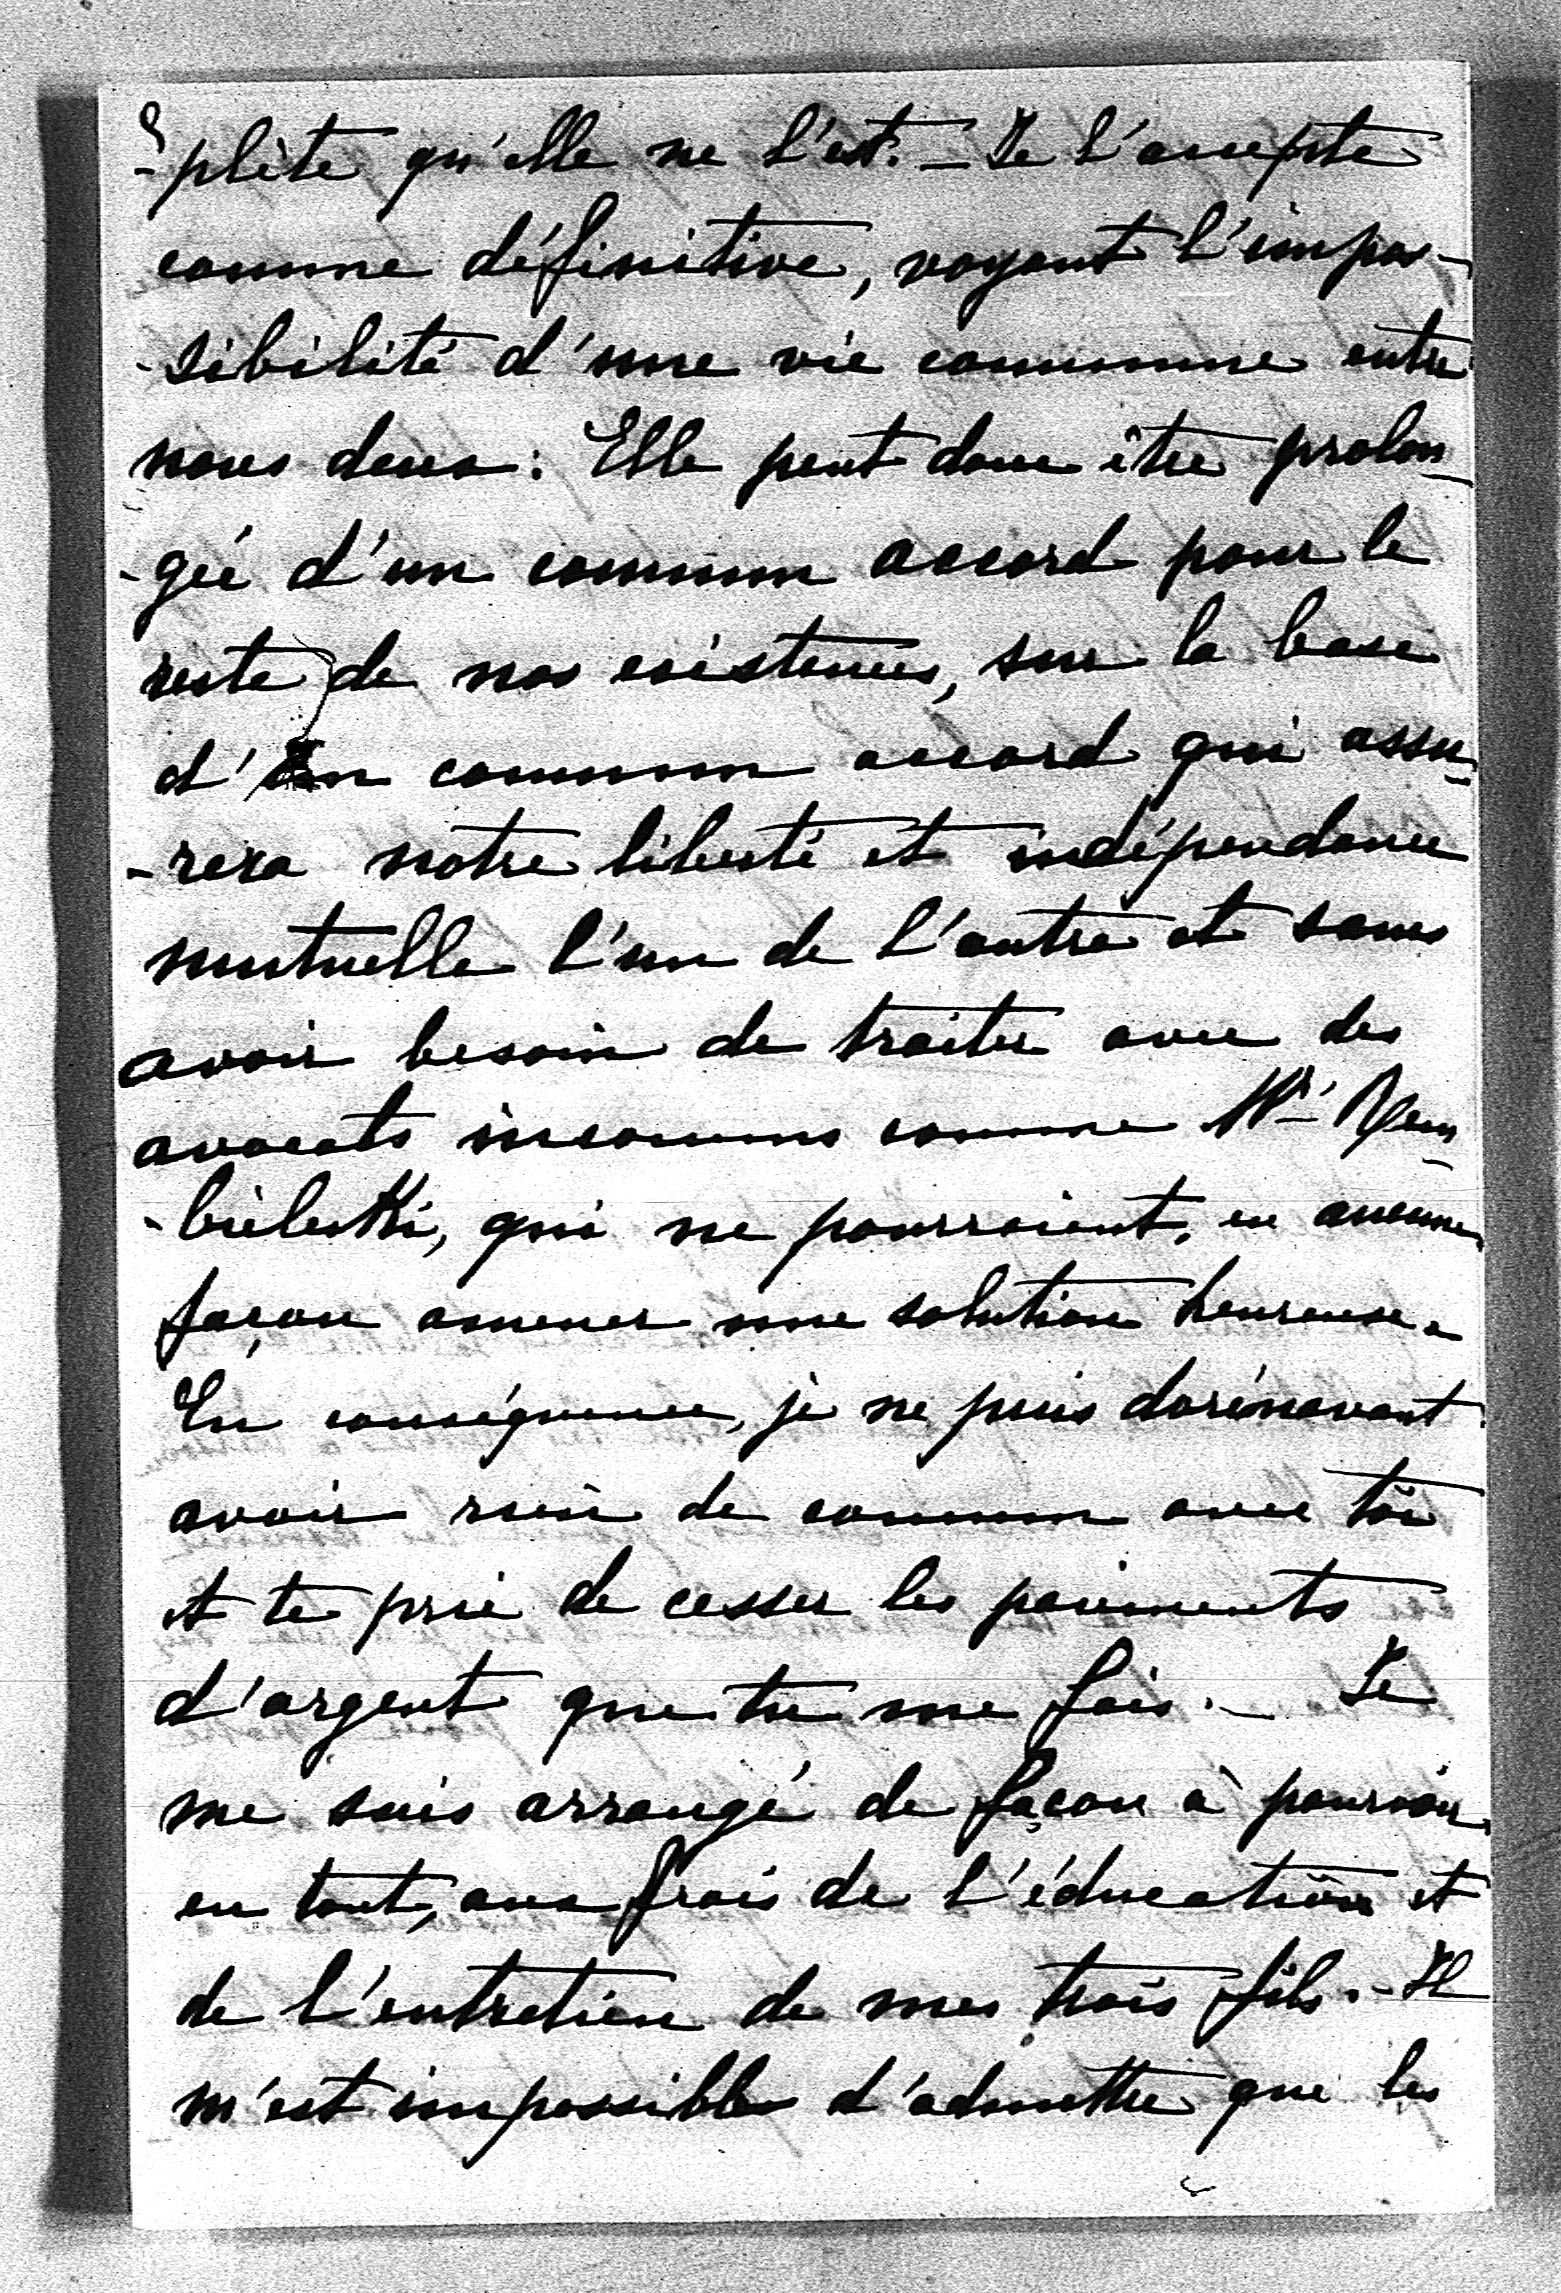 -plète qu'elle ne l'est. — Je l'accepte
comme définitive, voyant l'impos-
-sibilité d'une vie commune entre
nous deux : Elle peut donc être prolon-
-gée d'un commun accord pour le
reste de nos existences, sur la base
d'un commun accord qui assu-
-rera notre liberté et indépendance
mutuelle l'un de l'autre et sans
avoir besoin de traiter avec des
avocats inconnus comme Mr
qui ne pourraient, en aucune
façon amener une solution heureuse.
En conséquence, je ne puis dorénavant
avoir rien de commun avec toi
et te prie de cesser les paiements
d'argent que tu me fais. — Je
me suis arrangé de façon à pourvoir
en tout, aux frais de l'éducation et
de l'entretien de mes trois fils. — Il
m'est impossible d'admettre que les